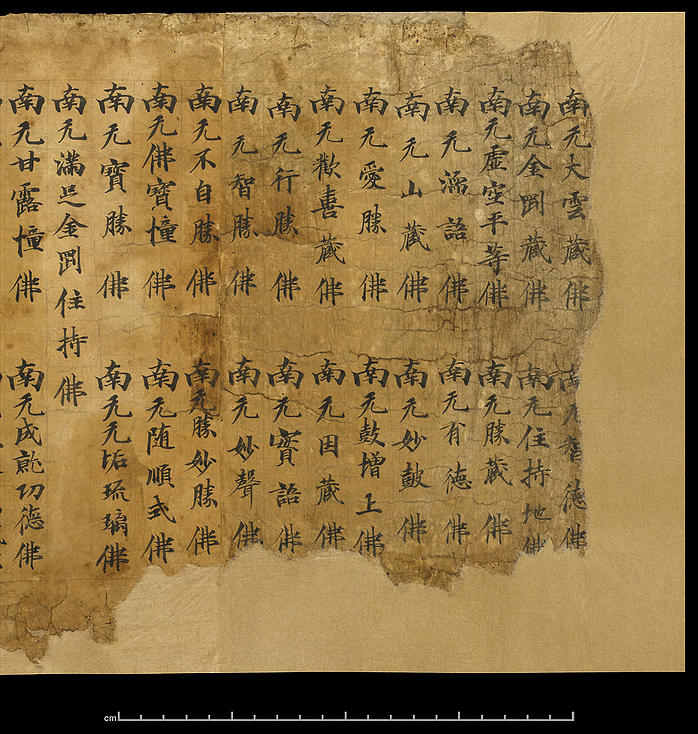 南无大雲藏佛 南无智德佛
南无金剛藏佛 南无住持地佛
南无虛空平等佛 南无勝藏佛
南无語佛 南无有德佛
南无山藏佛 南无妙鼓佛
南无愛勝佛 南无鼓增上佛
南无歡喜藏佛 南无因藏佛
南无行勝佛 南无實語佛
南无智勝佛 南无妙聲佛
南无不自勝佛 南无勝妙勝佛
南无佛寶幢佛 南无随順式佛
南无寶勝佛 南无无垢琉璃佛
南无滿足金剛住持佛
南无甘露幢佛 南无成就功德佛
cm